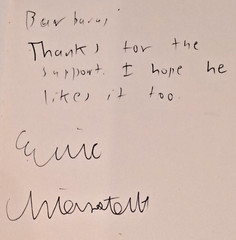 Barbara;
Thanks for the
support. I hope he
likes it too.
Eric